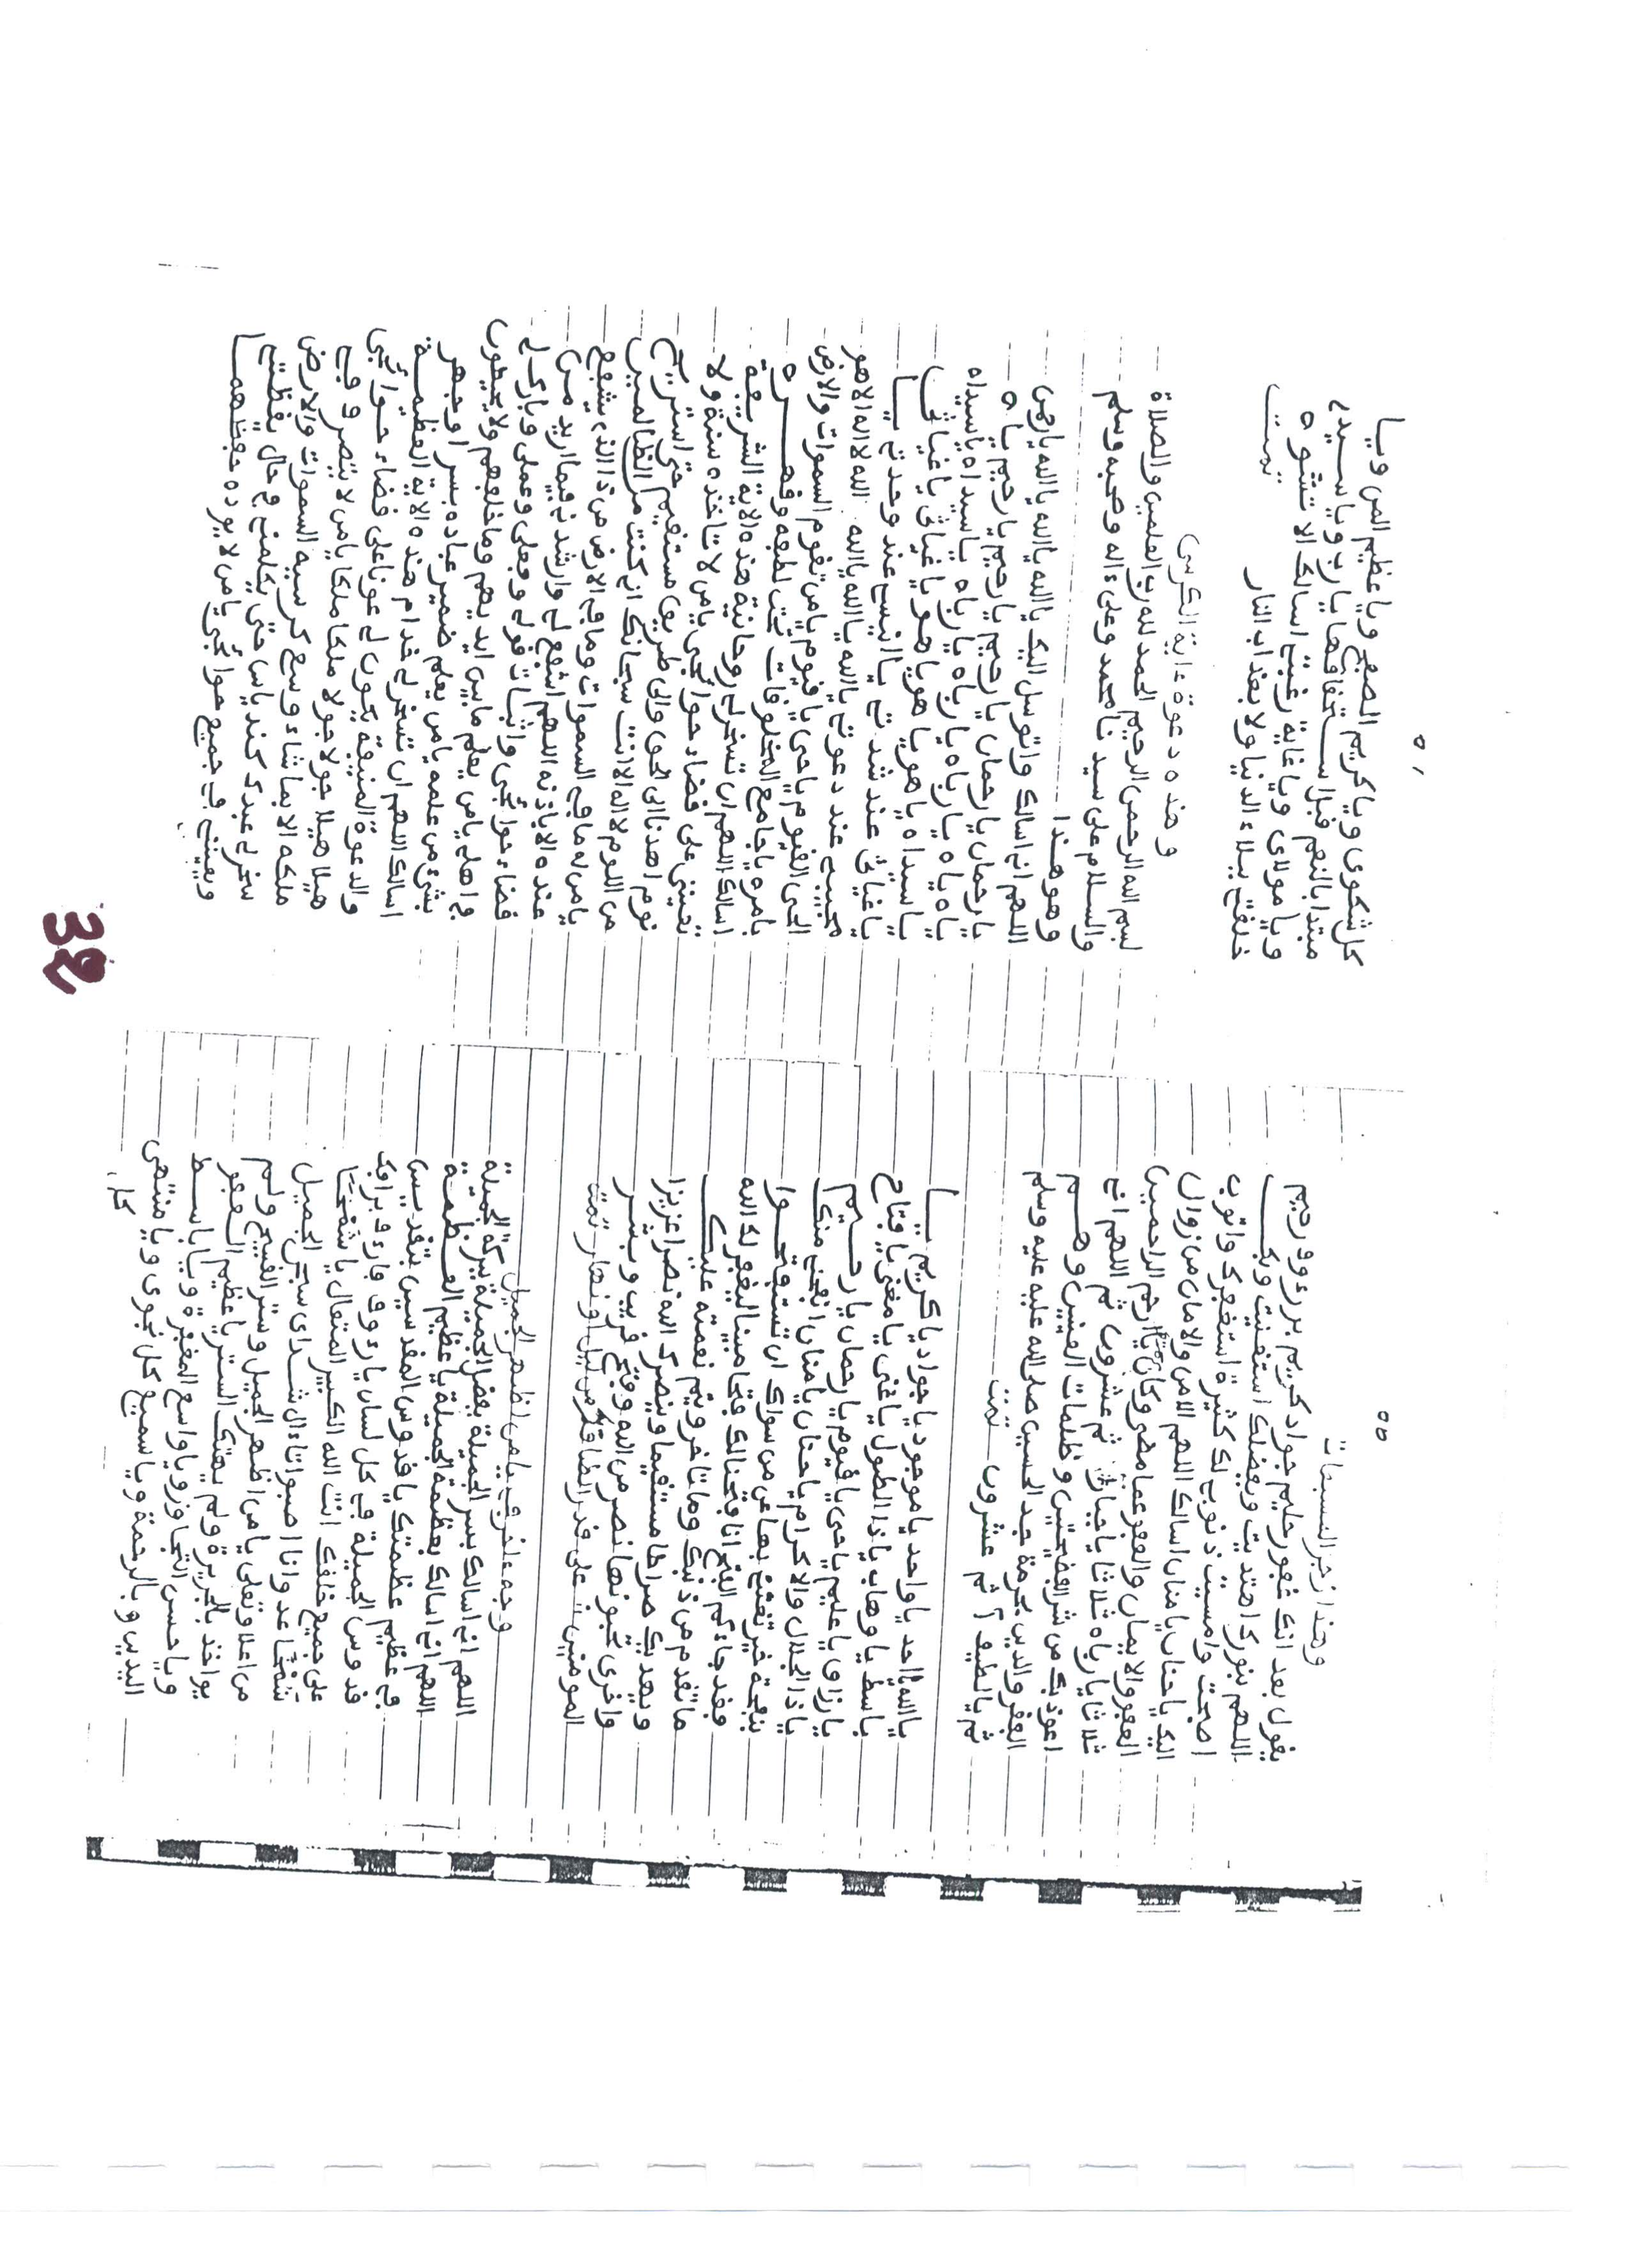 ٥٥
وهذا زجر النسبمات
يقول بعد انك غفور حليم جواد كريم بر رءوف رحيم
اللهم بنورك اهتديت وبفضلك استغنيت وبك
اصبحت وامسيت ذنوبى لك كثيرة استغفرك واتوب
اليك يا حنان يا منان اسالك اللهم الامن والامان من زوال
العفو والايمان والعفو عما مضى وكان يا ارحم الراحمين
ثلاثا يا رباه ثلاثا يا غياث ثم عشرون ثم اللهم انى
اعوذ بك من شر الفضيحتين وظلمات العينين وهم
الفقر والدين بحرمة جد الحسين صلى الله عليه وسلم
ثم يا لطيف ثم عشرون تمت
يا الله يا احد يا واحد يا موجود يا جواد يا كريم يا
باسط يا وهاب يا ذا الطول يا غنى يا مغنى يا فتاح
يا رزاق يا عليم يا حى يا قيوم يا رحمان يا رحيم
يا ذا الجلال والاكرام يا حنان يا منان انفحنى منك
بنفحة خير تغننى بها عن من سواك ان تستفتحوا
فقد جاءكم الفتح انا فتحنا لك فتحا مبينا ليغفر لك الله
ما تقدم من ذنبك وما تاخر ويتم نعمته عليك
ويهديك صراطا مستقيما وينصرك الله نصرا عزيزا
واخرى تحبونها نصر من الله وفتح قريب وبشر
المومنين على قدر الطاقة من ليل او نهار تمت
وجه اخر فى يا من اظهر الجميل
اللهم انى اسالك بسر الجميلة بفضل الجميلة ببركة الجميلة
اللهم انى اسالك بعظمة الجميلة يا عظيم العظمة
فى عظيم عظمتك يا قدوس المقدسين بتقديس
قدوس الجميلة فى كل لسان يا رءوف
على جميع خلقك انت الله الكبير المتعال
من اعلا وتعلى يا من اظهر الجميل وستر القبيح ولم
يواخذ بالجريرة ولم يهتك الستر يا عظيم العفو
ويا حسن التجاوز ويا واسع المغفرة ويا باسط
اليدين بالرحمة ويا سميع كل نجوى ويا منتهى
كل
كل شكوى ويا كريم الصفح ويا عظيم المن ويا
مبتدا بالنعم قبل استحقاقها يا رب ويا سيدى
ويا مولاى ويا غاية رغبتى اسالك الا تشوه
خلقتى ببلاء الدنيا ولا بعذاب النار تمت
وهذه دعوة ءاية الكرسى
بسم الله الرحمن الرحيم الحمد لله رب العلمين والصلاة
والسلام على سيدنا محمد وعلى ءاله وصحبه وسلم
وهو هذا
اللهم انى اسالك واتوسل اليك يا الله يا الله يا رحمن
يا رحمان يا رحمان يا رحيم يا رحيم يا رحيم ياه
ياه ياه ياه يا رباه يا رباه يا رباه يا سيداه يا سيداه
يا سيداه يا هو يا هو يا هو يا غياثى يا غياثى
يا غياثى عند شدتى يا انيسى عند وحدتى يا
مجيبى عند دعوتى يا الله يا الله يا الله الله لا اله الا هو
الحى القيوم يا حى يا قيوم يا من تقوم السموات والارض
بامره يا جامع المخلوقات تحت لطفه وقهره
اسالك اللهم ان تسخر لى روحانية هذه الاية الشريفة
تعيننى على قضاء حوائجى يا من لا تاخذه سنة ولا
نوم اهدنا الى الحق والى طريق مستقيم حتى استريح
من اللوم لا اله الا انت سبحانك انى كنت من الظالمين
يا من له ما فى السموات وما فى الارض من ذا الذى يشفع
عنده الا باذنه اللهم اشفع لى وارشدنى فيما اريد من
قضاء حوائجى واثبات قولى وفعلى وعملى وبارك لى
فى اهلى يا من يعلم ما بين ايديهم وما خلفهم ولا يحيطون
بشىء من علمه يا من يعلم ضمير عباده بسر او جهر
اسالك اللهم ان تسخر لى خدام هذه الاية العظيمة
والدعوة المنيفة يكون لى عونا على قضاء حوائجى
هيلا هيلا جولا جولا ملكا ملكا يا من لا يتصرف فى
ملكه الا بما شاء وسع كرسيه السموات والارض
سخر لى عبدك كندياس حتى يكلمنى فى حال يقظتى
ويعيننى فى جميع حوائجى يا من لا يوده حفظهما
32